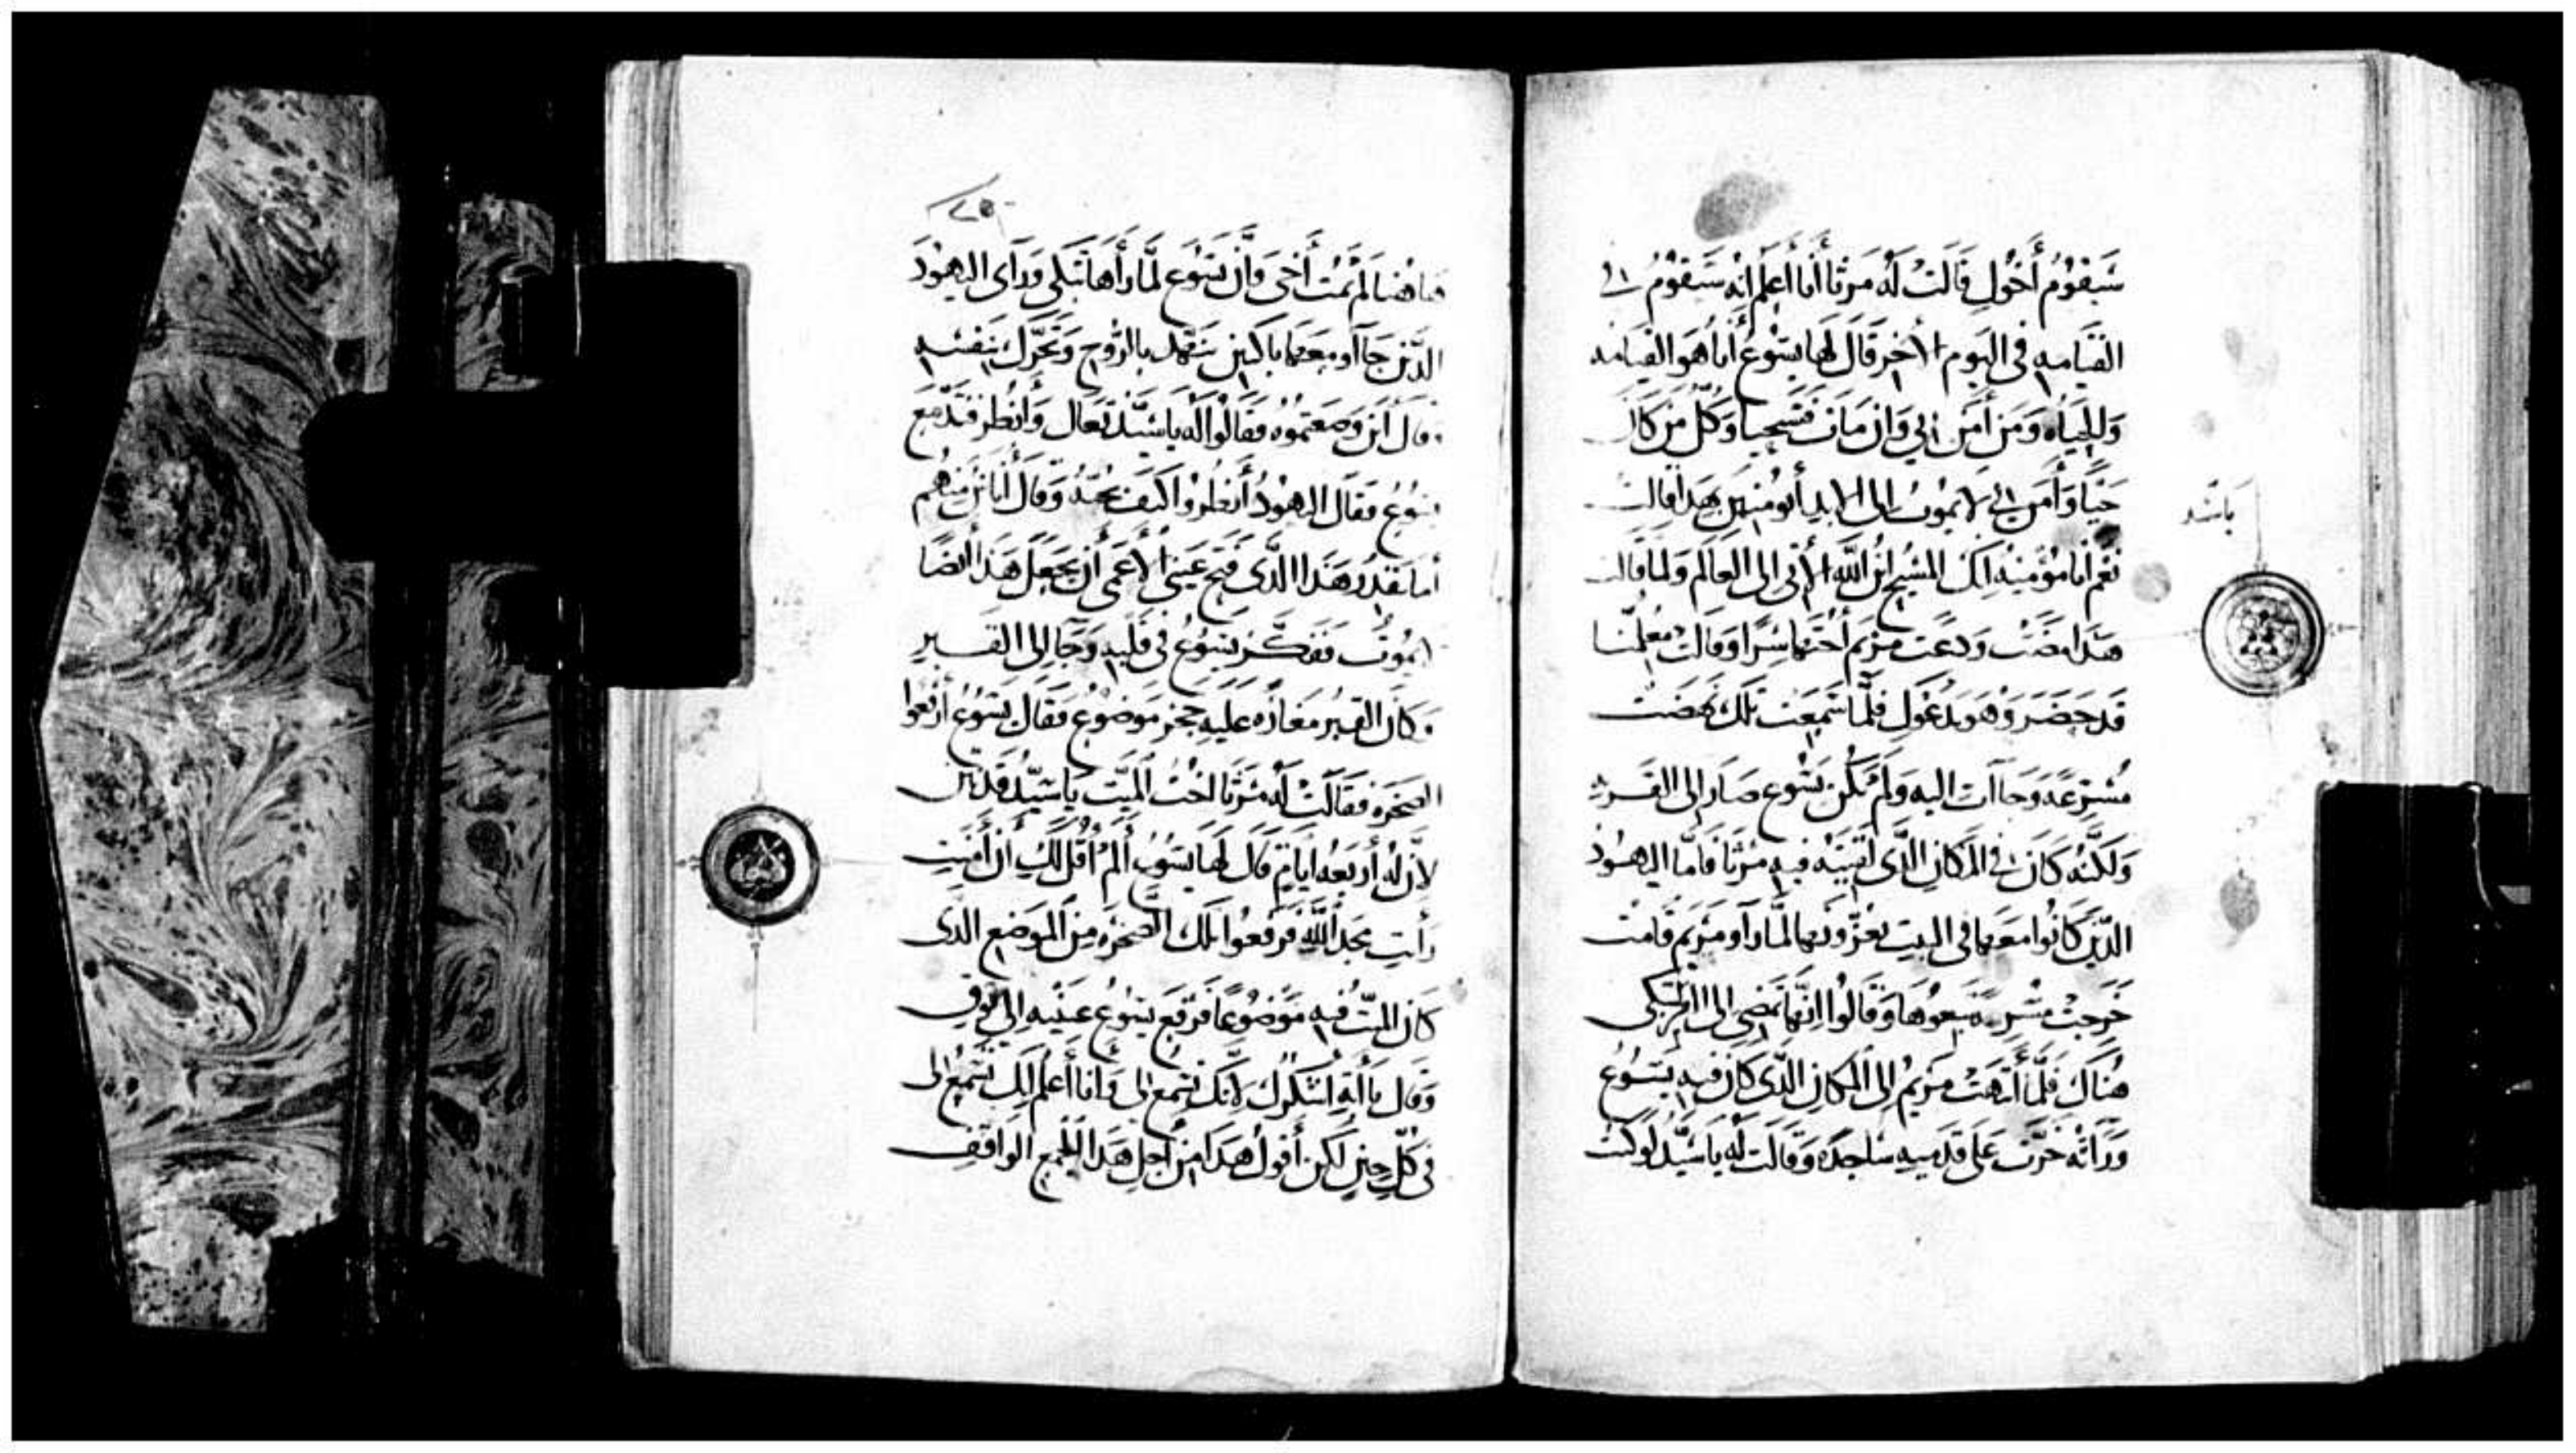 سَيَقُومُ أَخُوكِ قَالَتْ لَهُ مَرثَا أَنا أَعلَم انه سَيَقُومُ فى
القيَامه فى اليَوم الأخر قَالَ لَها يسُوعُ أنا هوَ القيامه
وَالحياه وَمَن أَمَن بى وَان مَات فسَيحيا وَكلّ مَن كانَ
حَيًا وَأَمن بى لا يمُوتُ الى الابد أتُومنين بهَدا قالت
يا سَيد
نَعَم أنا مُؤمنِه انك المسَيح ابنُ الله الأتى الى العالَم وَلما قالت
هَدا مضَت وَدعَت مَريَم أُختها سِرًا وَقالت مُعلمنا
قَد حَضَر وَهوَ يَدعُوكِ فلَمَّا سَمِعَت تلك نَهضَت
مُسْرعَه وَجاات اليه وَلم يَكُن يَسُوع صَار الى القَريه
وَلكنّهُ كَانَ فى المكانِ الدّى لَقيَتْه فيه مَرْثا فَامّا اليهُودُ
الدّين كَانُوا معَها فى البيت يعَزّونَها لمّا رَأَو مَريَم قَامَت
خَرجتْ مسْرعه تبعُوهَا وَقَالُوا انَّها تَمضى الى القبر لتَبكى
هُنَاك فلَمَّا أنتَهَت مَريَمُ الى المكانِ الدّى كانَ فيه يَسُوعُ
وَرَاَتْه خَرَّت عَلى قدَميه سَاجدَه وَقَالَت لَهُ يا سَيّد لوكنت
٧٥
هَاهُنا لَم يَمُت أَخى وَإنَّ يسُوع لمَّا رأَهَا تَبكى وَرَأى اليهُودَ
الدّينَ جَآاو معَها باكين تنَهّد بالرُّوح وَتَحَرّكَ بنَفسِه
وقال أينَ وَضَعتُموُه فقَالُوا لَه يا سَيّد تعَال وَانظر فدَمَّع
يسُوعُ فقال اليهُودُ أنظُروا كيفَ يحبّهُ وَقال أناسٌ منهُم
أما يَقدِرُ هَدا الدّى فتَح عَينى الأعمَى أن يجعَل هَدا أيضًا
لا يمُوت ففكَّر يَسُوعُ فى قَلبه وَجَا الى القَبر
وَكانَ القَبر مَغارَه عليهِ حجَر مَوضُوع فقَال يَسُوع ارفَعُوا
الصَخرَه فقَالَتْ لَهُ مَرثا اختُ المَيّت يا سَيّد قد نتن
لأَنَّ لهُ أربَعه ايام قَال لهَا يَسُوع ألَم أقُل لَكِ أن أَمَنتِ
رأيتِ مَجد اللهِ فَرفعوُا تلك الصَخرَه من المَوضع الدى
كانَ الميّتُ فيه مَوضُوعًا فَرفع يَسُوعُ عَينيه الى فوق
وَقال يا أبَهِ اشكُرك لأنّكَ تَسمع لى وَانا أعلم انّك تَسمَعُ لى
فى كلّ حينٍ لكن أقول هَدَا من أجل هَدا الجمع الوَاقف